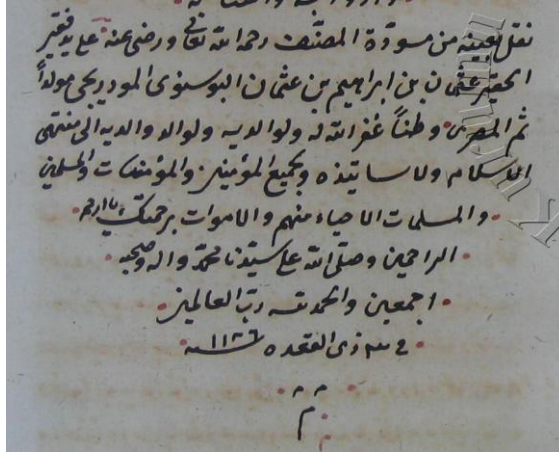 نقل بعينه من مسودة المصنف رحمه الله تعالى ورضى عنه على يد فقير
الحقير عثمان بن ابراهيم بن عثمان البوسنوى المودريجى مولداً
ثم المصرى وطناً غفر الله له ولوالديه ولوالد والديه الى منتهى
الاسلام ولاساتيذه وجميع المؤمنين والمؤمنات والمسلمين
والمسلمات الاحياء منهم والاموات برحمتك يا ارحم
الراحمين وصلى الله على سيدنا محمد واله وصحبه
اجمعين والحمد لله رب العالمين
فى ذى القعده سنه ١١٣٦
م م م